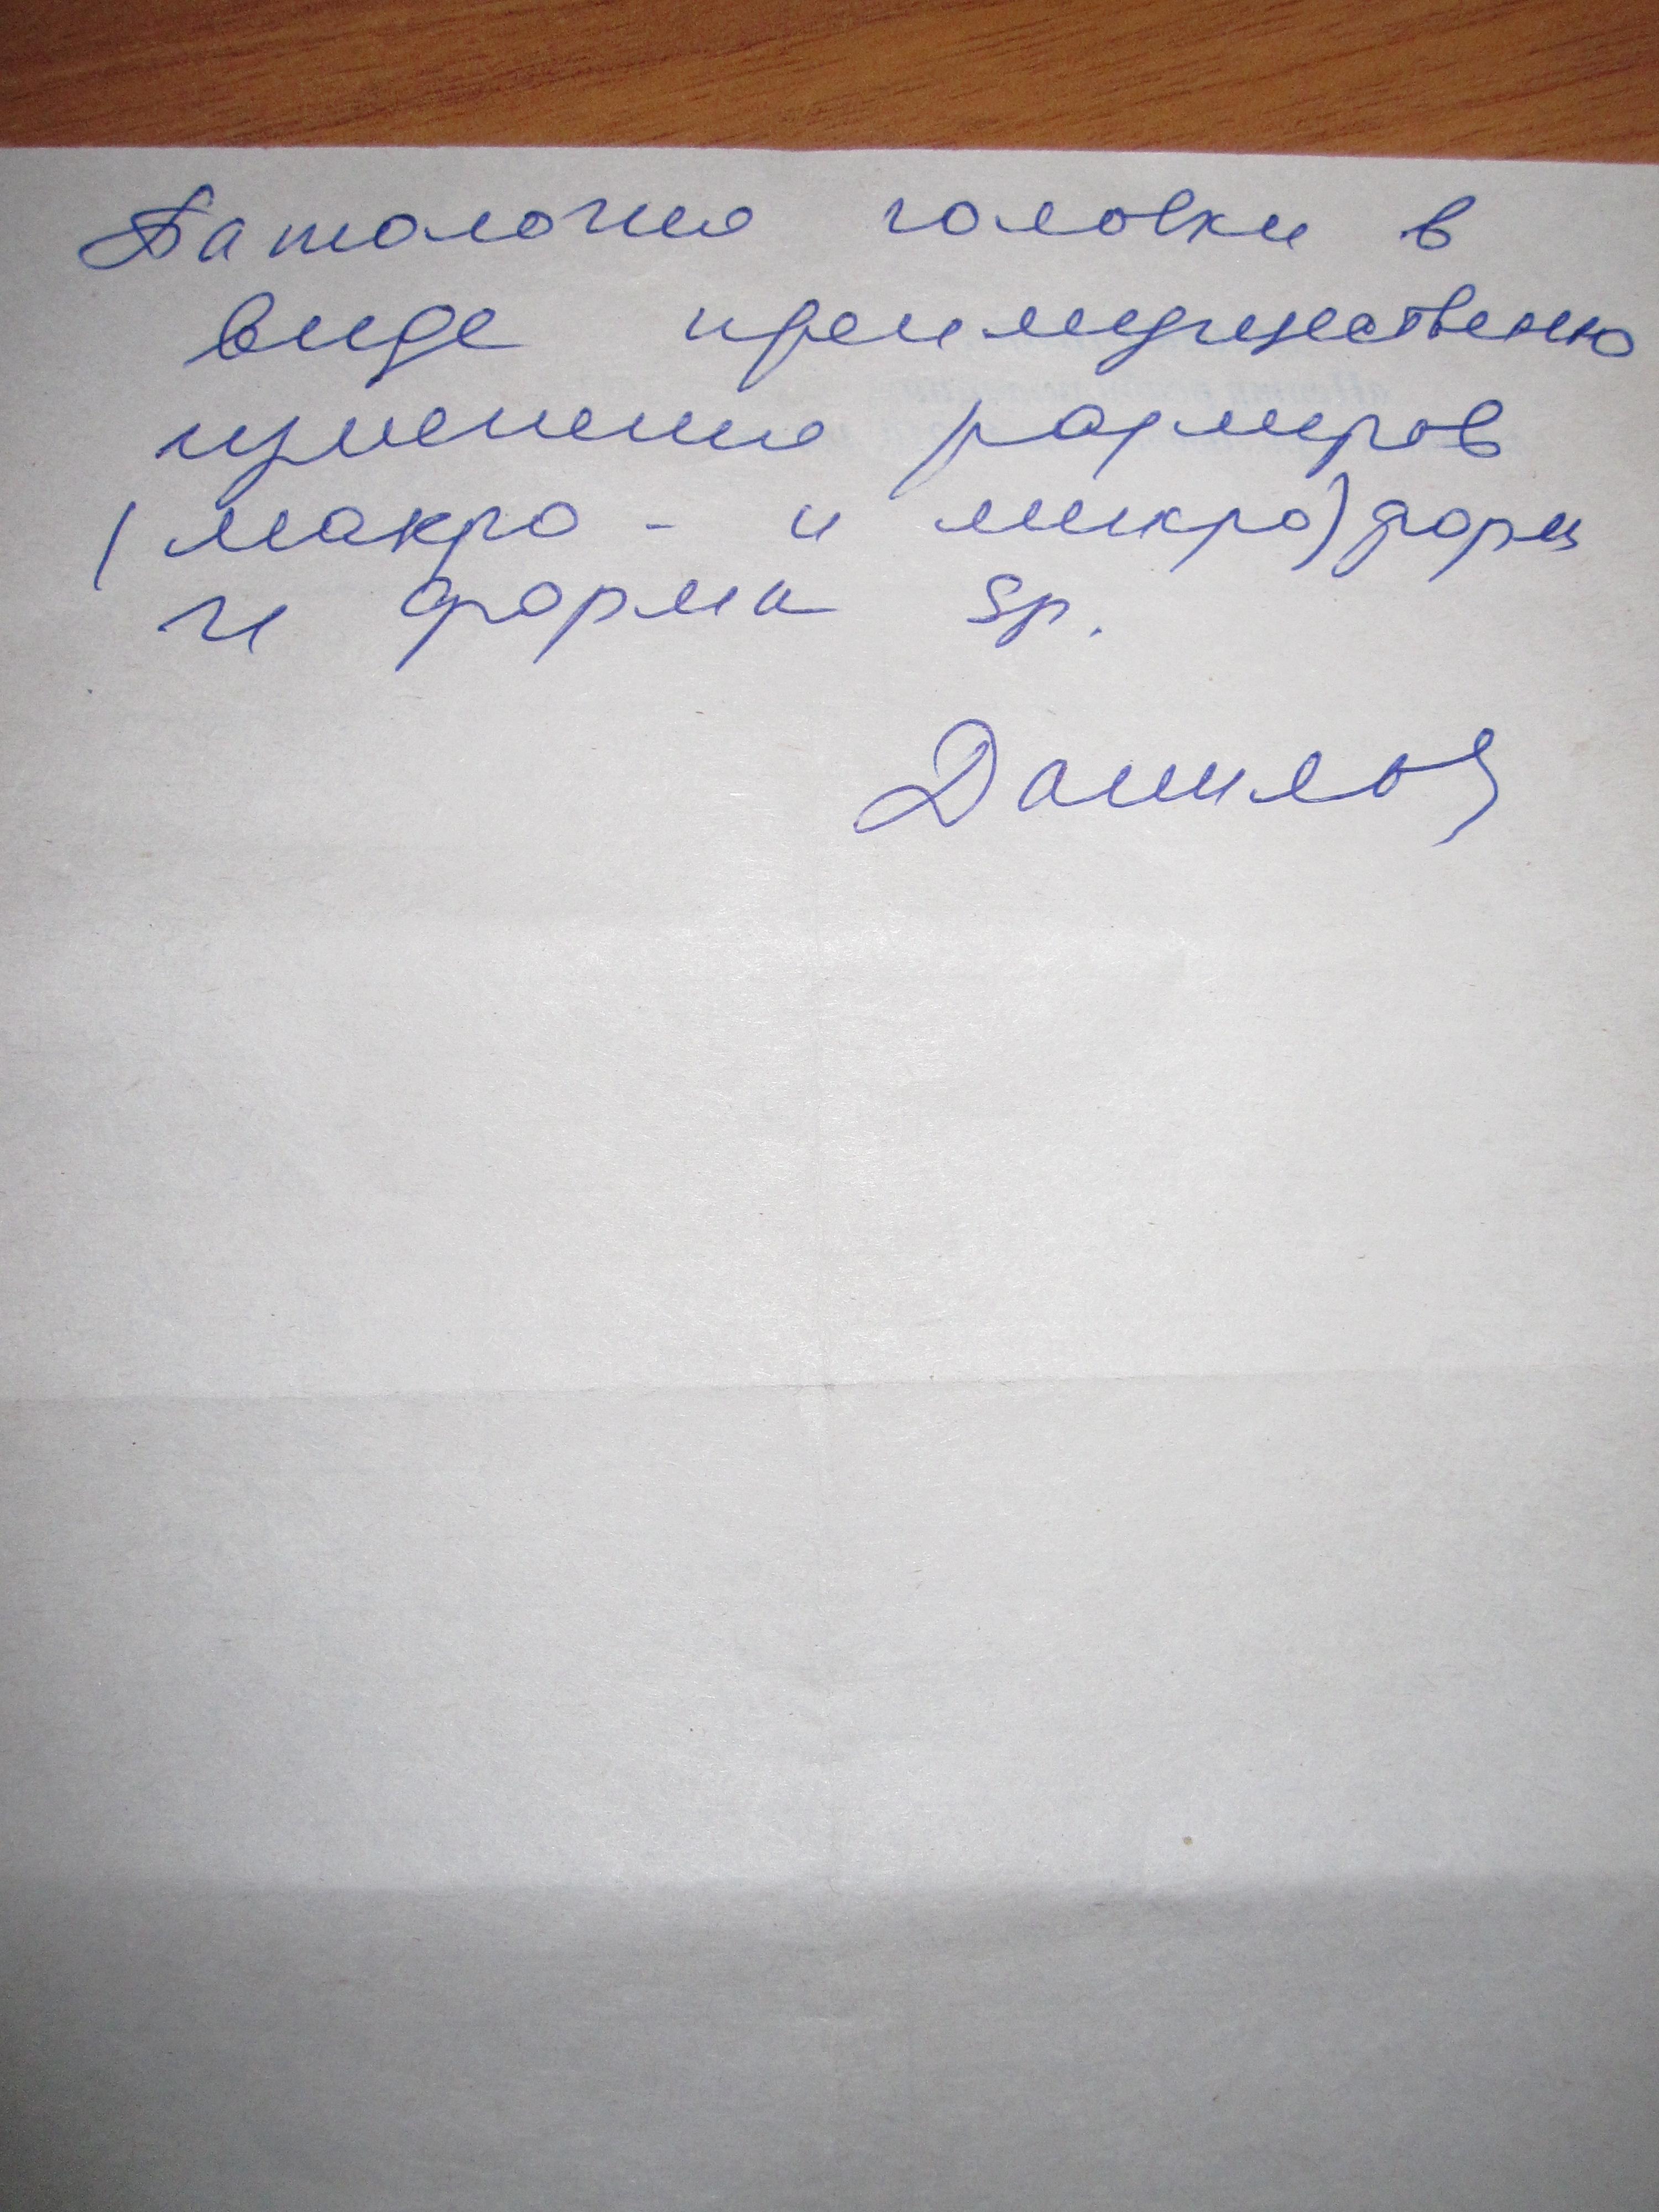 Патология головки в
виде преимущественно
изменения размеров
(макро - и микро) форм
и форма Sp.